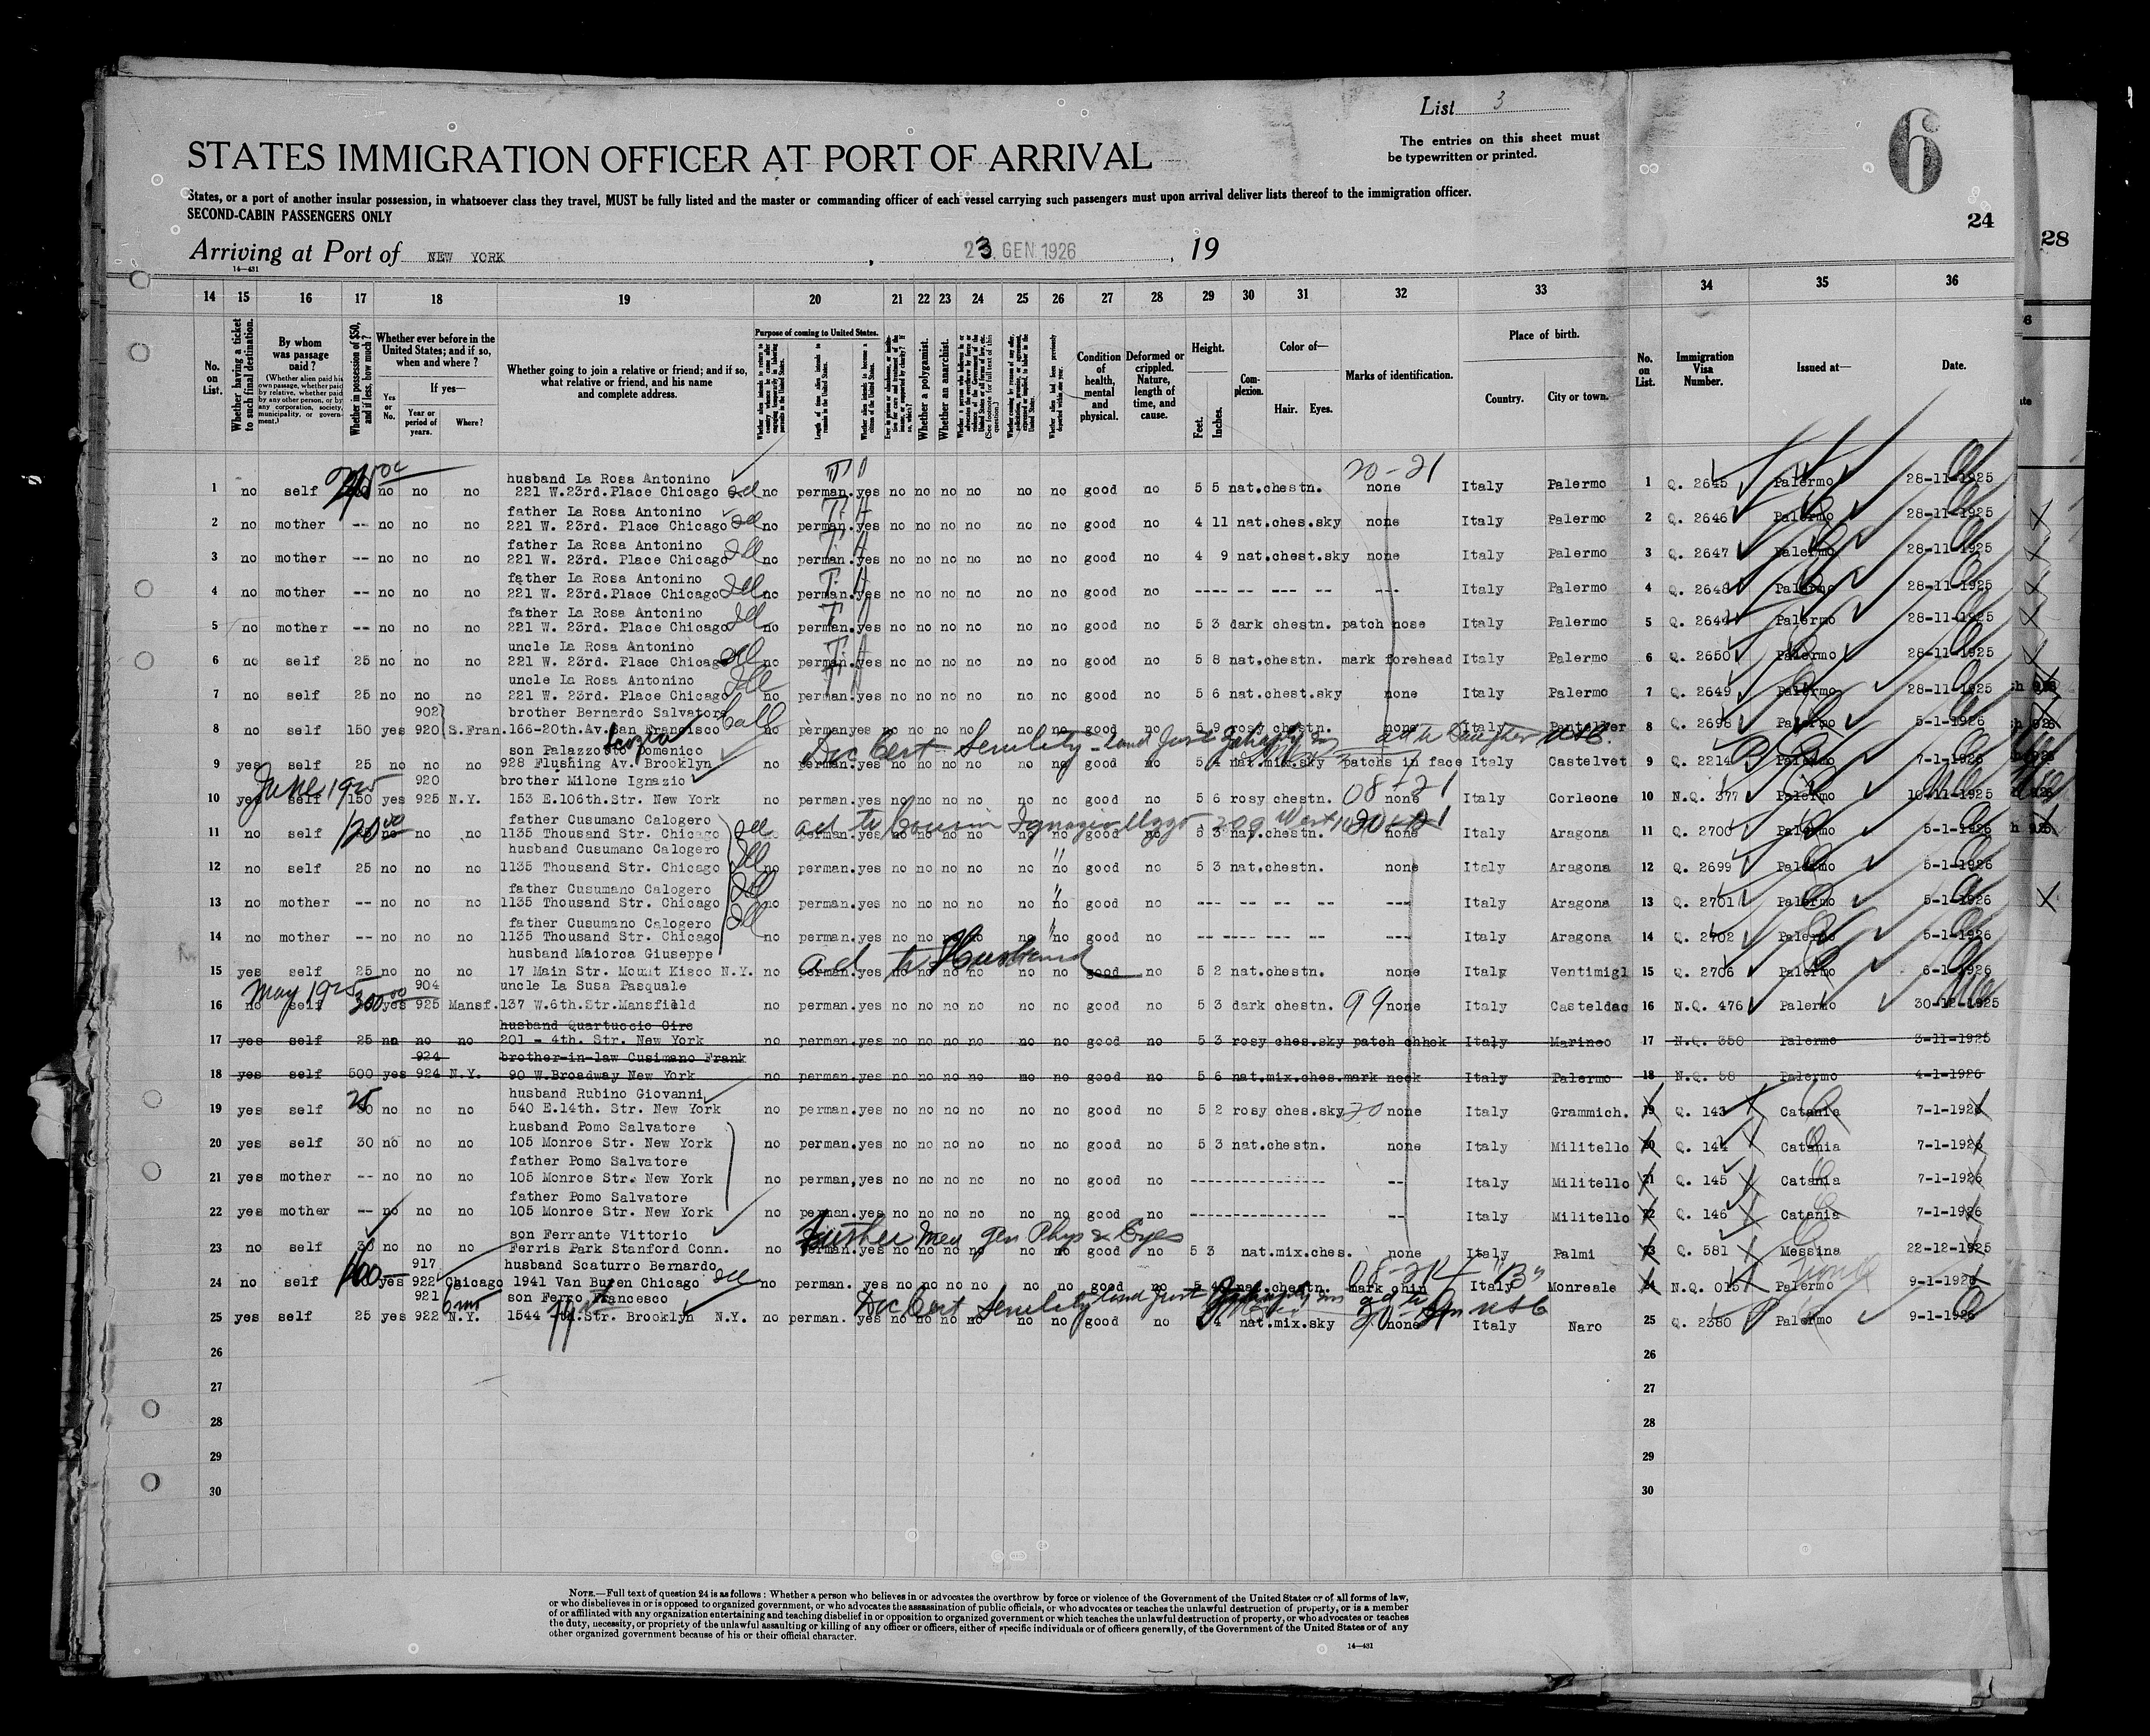 List 3
The entries on this sheet must
be typewritten or printed.
6
24
28
STATES IMMIGRATION OFFICER AT PORT OF ARRIVAL
States, or a port of another insular possession, in whatsoever class they travel, MUST be fully listed and the master or commanding officer of each vessel carrying such passengers must upon arrival deliver lists thereof to the immigration officer.
SECOND-CABIN PASSENGERS ONLY
Arriving at Port of NEW YORK, 23 GEN 1926, 19
14—431
14 15 16 17 18 19 20 21 22 23 24 25 26 27 28 29 30 31 32 33 34 35 36
No. on List.
Whether having a ticket to such final destination.
By whom was passage paid?
(Whether alien paid his own passage, whether paid by relative, whether paid by any other person, or by any corporation, society, municipality, or government.)
Whether in possession of $50, and if less, how much?
Whether ever before in the United States; and if so, when and where?
If yes—
Yes or No.
Year or period of years.
Where?
Whether going to join a relative or friend; and if so, what relative or friend, and his name and complete address.
Purpose of coming to United States.
Length of time alien intends to remain in the United States.
Whether alien intends to become a citizen of the United States.
Whether a polygamist.
Whether an anarchist.
Condition of health, mental and physical.
Deformed or crippled. Nature, length of time, and cause.
Height.
Feet. Inches.
Complexion.
Color of—
Hair. Eyes.
Marks of identification.
Place of birth.
Country. City or town.
No. on List.
Immigration Visa Number.
Issued at—
Date.
20-21
husband La Rosa Antonino
1 no self no no no 221 W.23rd.Place Chicago Ill no perman. yes no no no no no no good no 5 5 nat.chestn. none Italy Palermo 1 Q. 2645 Palermo 28-11-1925
father La Rosa Antonino
2 no mother -- no no no 221 W. 23rd. Place Chicago Ill no perman. yes no no no no no no good no 4 11 nat.ches.sky none Italy Palermo 2 Q. 2646 Palermo 28-11-1925
father La Rosa Antonino
3 no mother -- no no no 221 W. 23rd. Place Chicago Ill no perman. yes no no no no no no good no 4 9 nat.chest.sky none Italy Palermo 3 Q. 2647 Palermo 28-11-1925
father La Rosa Antonino
4 no mother -- no no no 221 W. 23rd.Place Chicago Ill no perman. yes no no no no no no good no ---- -- --- -- --- Italy Palermo 4 Q. 2648 Palermo 28-11-1925
father La Rosa Antonino
5 no mother -- no no no 221 W. 23rd. Place Chicago Ill no perman. yes no no no no no no good no 5 3 dark chestn. patch nose Italy Palermo 5 Q. 2644 Palermo 28-11-1925
uncle La Rosa Antonino
6 no self 25 no no no 221 W. 23rd. Place Chicago Ill no perman. yes no no no no no no good no 5 8 nat.chestn. mark forehead Italy Palermo 6 Q. 2650 Palermo 28-11-1925
uncle La Rosa Antonino
7 no self 25 no no no 221 W. 23rd. Place Chicago Ill no perman. yes no no no no no no good no 5 6 nat.chest.sky none Italy Palermo 7 Q. 2649 Palermo 28-11-1925
902 brother Bernardo Salvatore Call
8 no self 150 yes 920 S.Fran. 166-20th.Av.San Francisco no perman yes no no no no no no good no 5 9 rosy chestn. none Italy Panteller 8 Q. 2698 Palermo 5-1-1926
son Palazzotto Domenico
Doc Cert Senility ad to Daughter
9 yes self 25 no no no 928 Flushing Av. Brooklyn no perman. yes no no no no no no good no 5 4 nat.mix.sky patchs in face Italy Castelvet 9 Q. 2214 Palermo 7-1-1926
June 1925
920 brother Milone Ignazio
08-21
10 yes self 150 yes 925 N.Y. 153 E.106th.Str. New York no perman. yes no no no no no no good no 5 6 rosy chestn. none Italy Corleone 10 N.Q. 377 Palermo 10-11-1925
120.00
father Cusumano Calogero
ad to Cousin Ignazio
11 no self no no no 1135 Thousand Str. Chicago Ill no perman. yes no no no no no no good no 5 3 nat.chestn. none Italy Aragona 11 Q. 2700 Palermo 5-1-1926
husband Cusumano Calogero
12 no self 25 no no no 1135 Thousand Str. Chicago Ill no perman. yes no no no no no no good no 5 3 nat.chestn. none Italy Aragona 12 Q. 2699 Palermo 5-1-1926
father Cusumano Calogero
13 no mother -- no no no 1135 Thousand Str. Chicago Ill no perman. yes no no no no no no good no --- -- -- -- -- --- Italy Aragona 13 Q. 2701 Palermo 5-1-1926
father Cusumano Calogero
14 no mother -- no no no 1135 Thousand Str. Chicago Ill no perman. yes no no no no no no good no Italy Aragona 14 Q. 2702 Palermo 5-1-1926
husband Maiorca Giuseppe
ad to Husband
15 yes self 25 no no no 17 Main Str. Mount Kisco N.Y. no perman. yes no no no no no no good no 5 2 nat.chestn. none Italy Ventimigl 15 Q. 2706 Palermo 6-1-1926
May 1925
904 uncle La Susa Pasquale
16 no self 300.00 yes 925 Mansf. 137 W.6th.Str.Mansfield no perman. yes no no no no no no good no 5 3 dark chestn. 99 none Italy Casteldac 16 N.Q. 476 Palermo 30-12-1925
husband Quartuccio Ciro
17 yes self 25 no no no 201 - 4th. Str. New York no perman. yes no no no no no no good no 5 3 rosy ches.sky patch chhek Italy Marineo 17 N.Q. 350 Palermo 3-11-1925
924 brother-in-law Cusimano Frank
18 yes self 500 yes 924 N.Y. 90 W.Broadway New York no perman. yes no no no no no no good no 5 6 nat.mix.ches. mark neck Italy Palermo 18 N.Q. 58 Palermo 4-1-1926
husband Rubino Giovanni
19 yes self no no no 540 E.14th. Str. New York no perman. yes no no no no no no good no 5 2 rosy ches.sky 20 none Italy Grammich. 19 Q. 143 Catania 7-1-1926
husband Pomo Salvatore
20 yes self 30 no no no 105 Monroe Str. New York no perman. yes no no no no no no good no 5 3 nat.chestn. none Italy Militello 20 Q. 144 Catania 7-1-1926
father Pomo Salvatore
21 yes mother -- no no no 105 Monroe Str. New York no perman, yes no no no no no no good no ---------------- -- Italy Militello 21 Q. 145 Catania 7-1-1926
father Pomo Salvatore
22 yes mother -- no no no 105 Monroe Str. New York no perman. yes no no no no no no good no ---------------- -- Italy Militello 22 Q. 146 Catania 7-1-1926
son Ferrante Vittorio
Further Phys & Eyes
23 no self 30 no no no Ferris Park Stanford Conn. no perman. yes no no no no no no good no 5 3 nat.mix.ches. none Italy Palmi 23 Q. 581 Messina 22-12-1925
917 husband Scaturro Bernardo
24 no self yes 922 Chicago 1941 Van Buren Chicago Ill no perman. yes no no no no no no good no 5 4 nat.chestn. mark chin Italy Monreale 24 N.Q. 015 Palermo 9-1-1926
921 son Ferro Francesco
Doc Cert Senility
25 yes self 25 yes 922 N.Y. 1544 Str. Brooklyn N.Y. no perman. yes no no no no no no good no 4 nat.mix.sky none Italy Naro 25 Q. 2380 Palermo 9-1-1926
26 26
27 27
28 28
29 29
30 30
NOTE.—Full text of question 24 is as follows: Whether a person who believes in or advocates the overthrow by force or violence of the Government of the United States or of all forms of law,
or who disbelieves in or is opposed to organized government, or who advocates the assassination of public officials, or who advocates or teaches the unlawful destruction of property, or is a member
of or affiliated with any organization entertaining and teaching disbelief in or opposition to organized government or which teaches the unlawful destruction of property, or who advocates or teaches
the duty, necessity, or propriety of the unlawful assaulting or killing of any officer or officers, either of specific individuals or of officers generally, of the Government of the United States or of any
other organized government because of his or their official character.
14—431